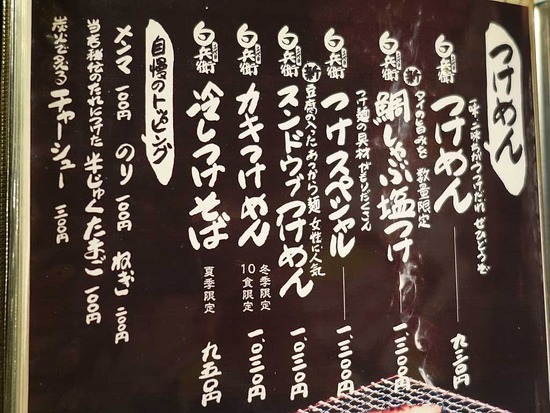 つけめん
一味、二味ちがうつけだれ ぜひどうぞ
白兵衛 つけめん 九二〇円
タイの旨みを 数量限定
白兵衛 新 鯛しゃぶ塩つけ 一、三〇〇円
つけ麺の具材がもりだくさん
白兵衛 つけスペシャル 一、二〇〇円
豆腐の入ったあつから麺 女性に人気
白兵衛 新 スンドゥブつけめん 一、〇三〇円
白兵衛 カキつけめん 冬季限定 10食限定 一、〇三〇円
白兵衛 冷しつけそば 夏季限定 九五〇円
自慢のトッピング
メンマ 一〇〇円 のり 一〇〇円 ねぎ 二〇〇円
当店秘伝のたれにつけた 半じゅくたまご 一〇〇円
炭火で炙る チャーシュー 三〇〇円